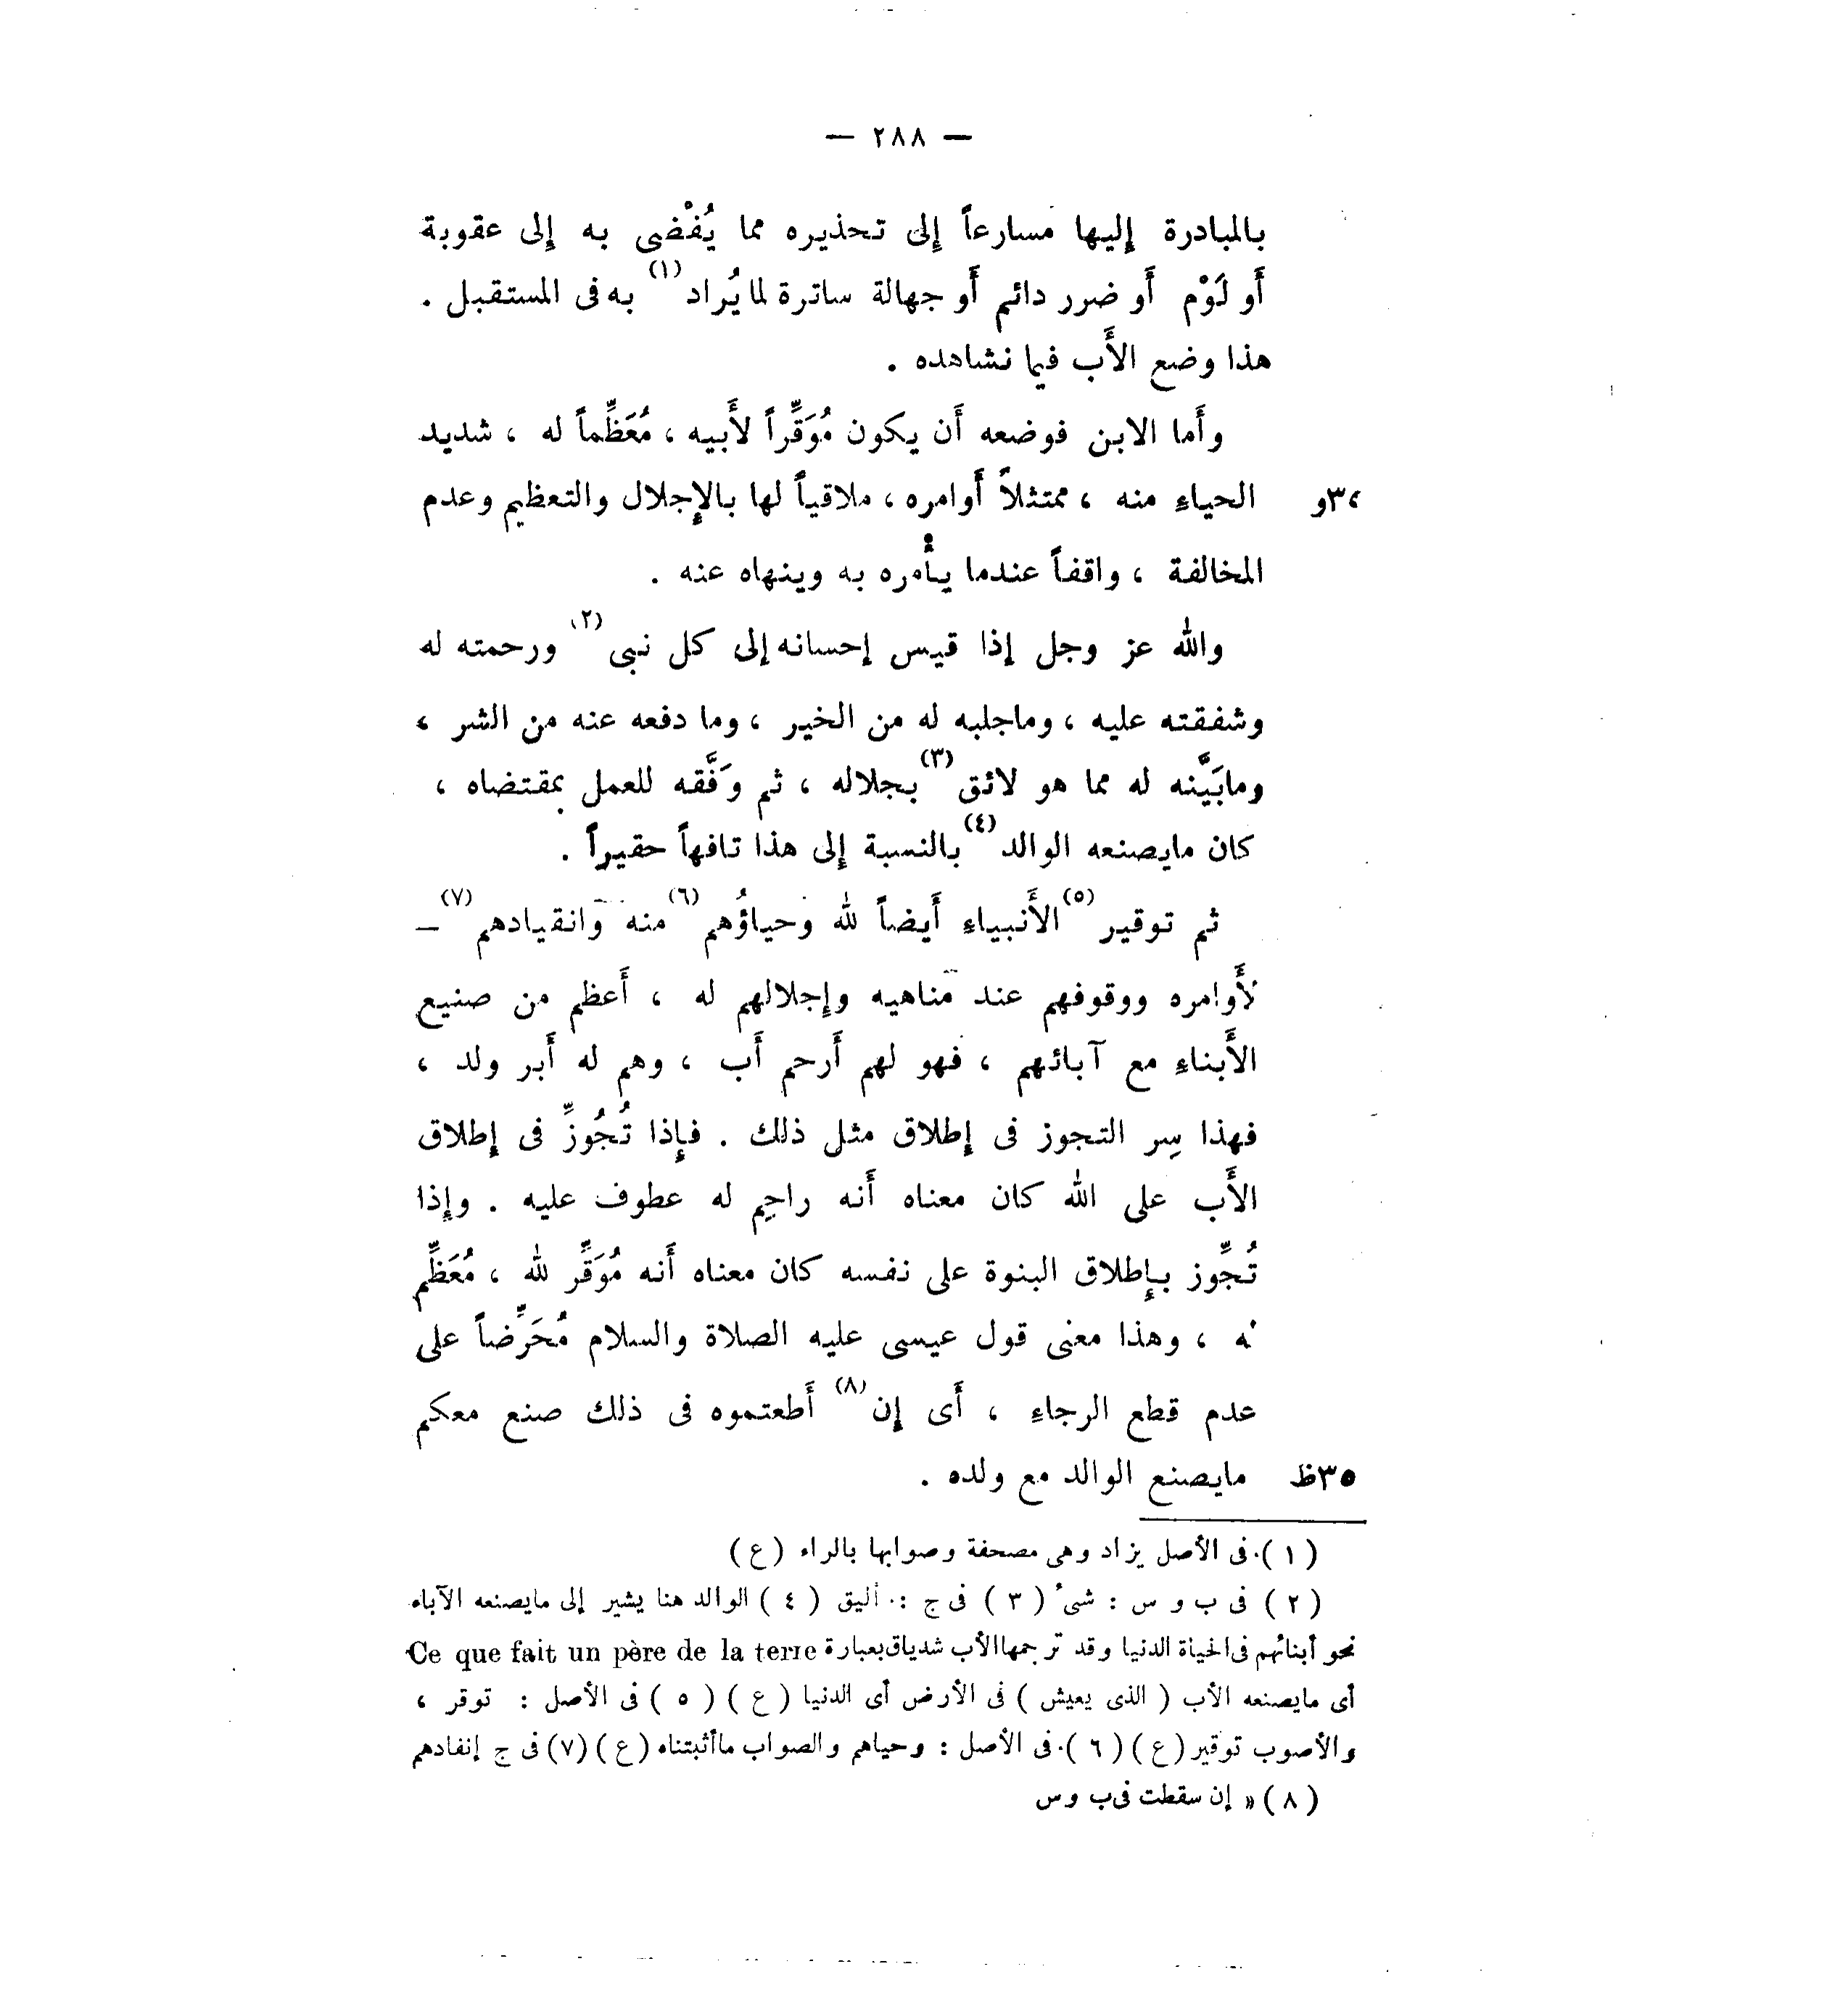 — ٢٨٨ —
بالمبادرة إليها مسارعاً إلى تحذيره مما يُفْضى به إلى عقوبة
أَو لَوْم أَو ضرر دائم أَو جهالة ساترة لما يُراد(١) به فى المستقبل .
هذا وضع الأَب فيما نشاهده .
وأَما الابن فوضعه أَن يكون مُوَقِّراً لأَبيه ، مُعَظِّماً له ، شديد
الحياءِ منه ، ممتثلاً أَوامره ، ملاقياً لها بالإِجلال والتعظيم وعدم
المخالفة ، واقفاً عندما يأْمره به وينهاه عنه .
والله عز وجل إذا قيس إحسانه إلى كل نبى(٢) ورحمته له
وشفقته عليه ، وماجلبه له من الخير ، وما دفعه عنه من الشر ،
ومابَيَّنه له مما هو لائق(٣) بجلاله ، ثم وَفَّقه للعمل بمقتضاه ،
كان مايصنعه الوالد(٤) بالنسبة إلى هذا تافهاً حقيراً .
ثم توقير(٥) الأَنبياءِ أَيضاً لله وحياؤُهم(٦) منه وانقيادهم(٧) –
لأَوامره ووقوفهم عند مناهيه وإِجلالهم له ، أَعظم من صنيع
الأَبناءِ مع آبائهم ، فهو لهم أَرحم أَب ، وهم له أَبر ولد ،
فهذا سِر التجوز فى إطلاق مثل ذلك . فإِذا تُجُوزِّ فى إطلاق
الأَب على الله كان معناه أَنه راحِم له عطوف عليه . وإِذا
تُجِّوز بإِطلاق البنوة على نفسه كان معناه أَنه مُوَقِّر لله ، مُعَظِّم
له ، وهذا معنى قول عيسى عليه الصلاة والسلام مُحَرِّضاً على
عدم قطع الرجاءِ ، أَى إِن(٨) أَطعتموه فى ذلك صنع معكم
٣٥ظ مايصنع الوالد مع ولده .
(١) فى الأصل يزاد وهى مصحفة وصوابها بالراء (ع)
(٢) فى ب و س : شىء (٣) فى ج : أليق (٤) الوالد هنا يشير إلى مايصنعه الآباء
نحو أبنائهم فى الحياة الدنيا وقد ترجمها الأب شدياق بعبارة Ce que fait un père de la terre
أى مايصنعه الأب (الذى يعيش) فى الأرض أى الدنيا (ع) (٥) فى الأصل : توقر ،
والأصوب توقير (ع) (٦) فى الأصل : وحياهم والصواب ماأثبتناه (ع) (٧) فى ج إنفادهم
(٨) » إن سقطت فى ب و س